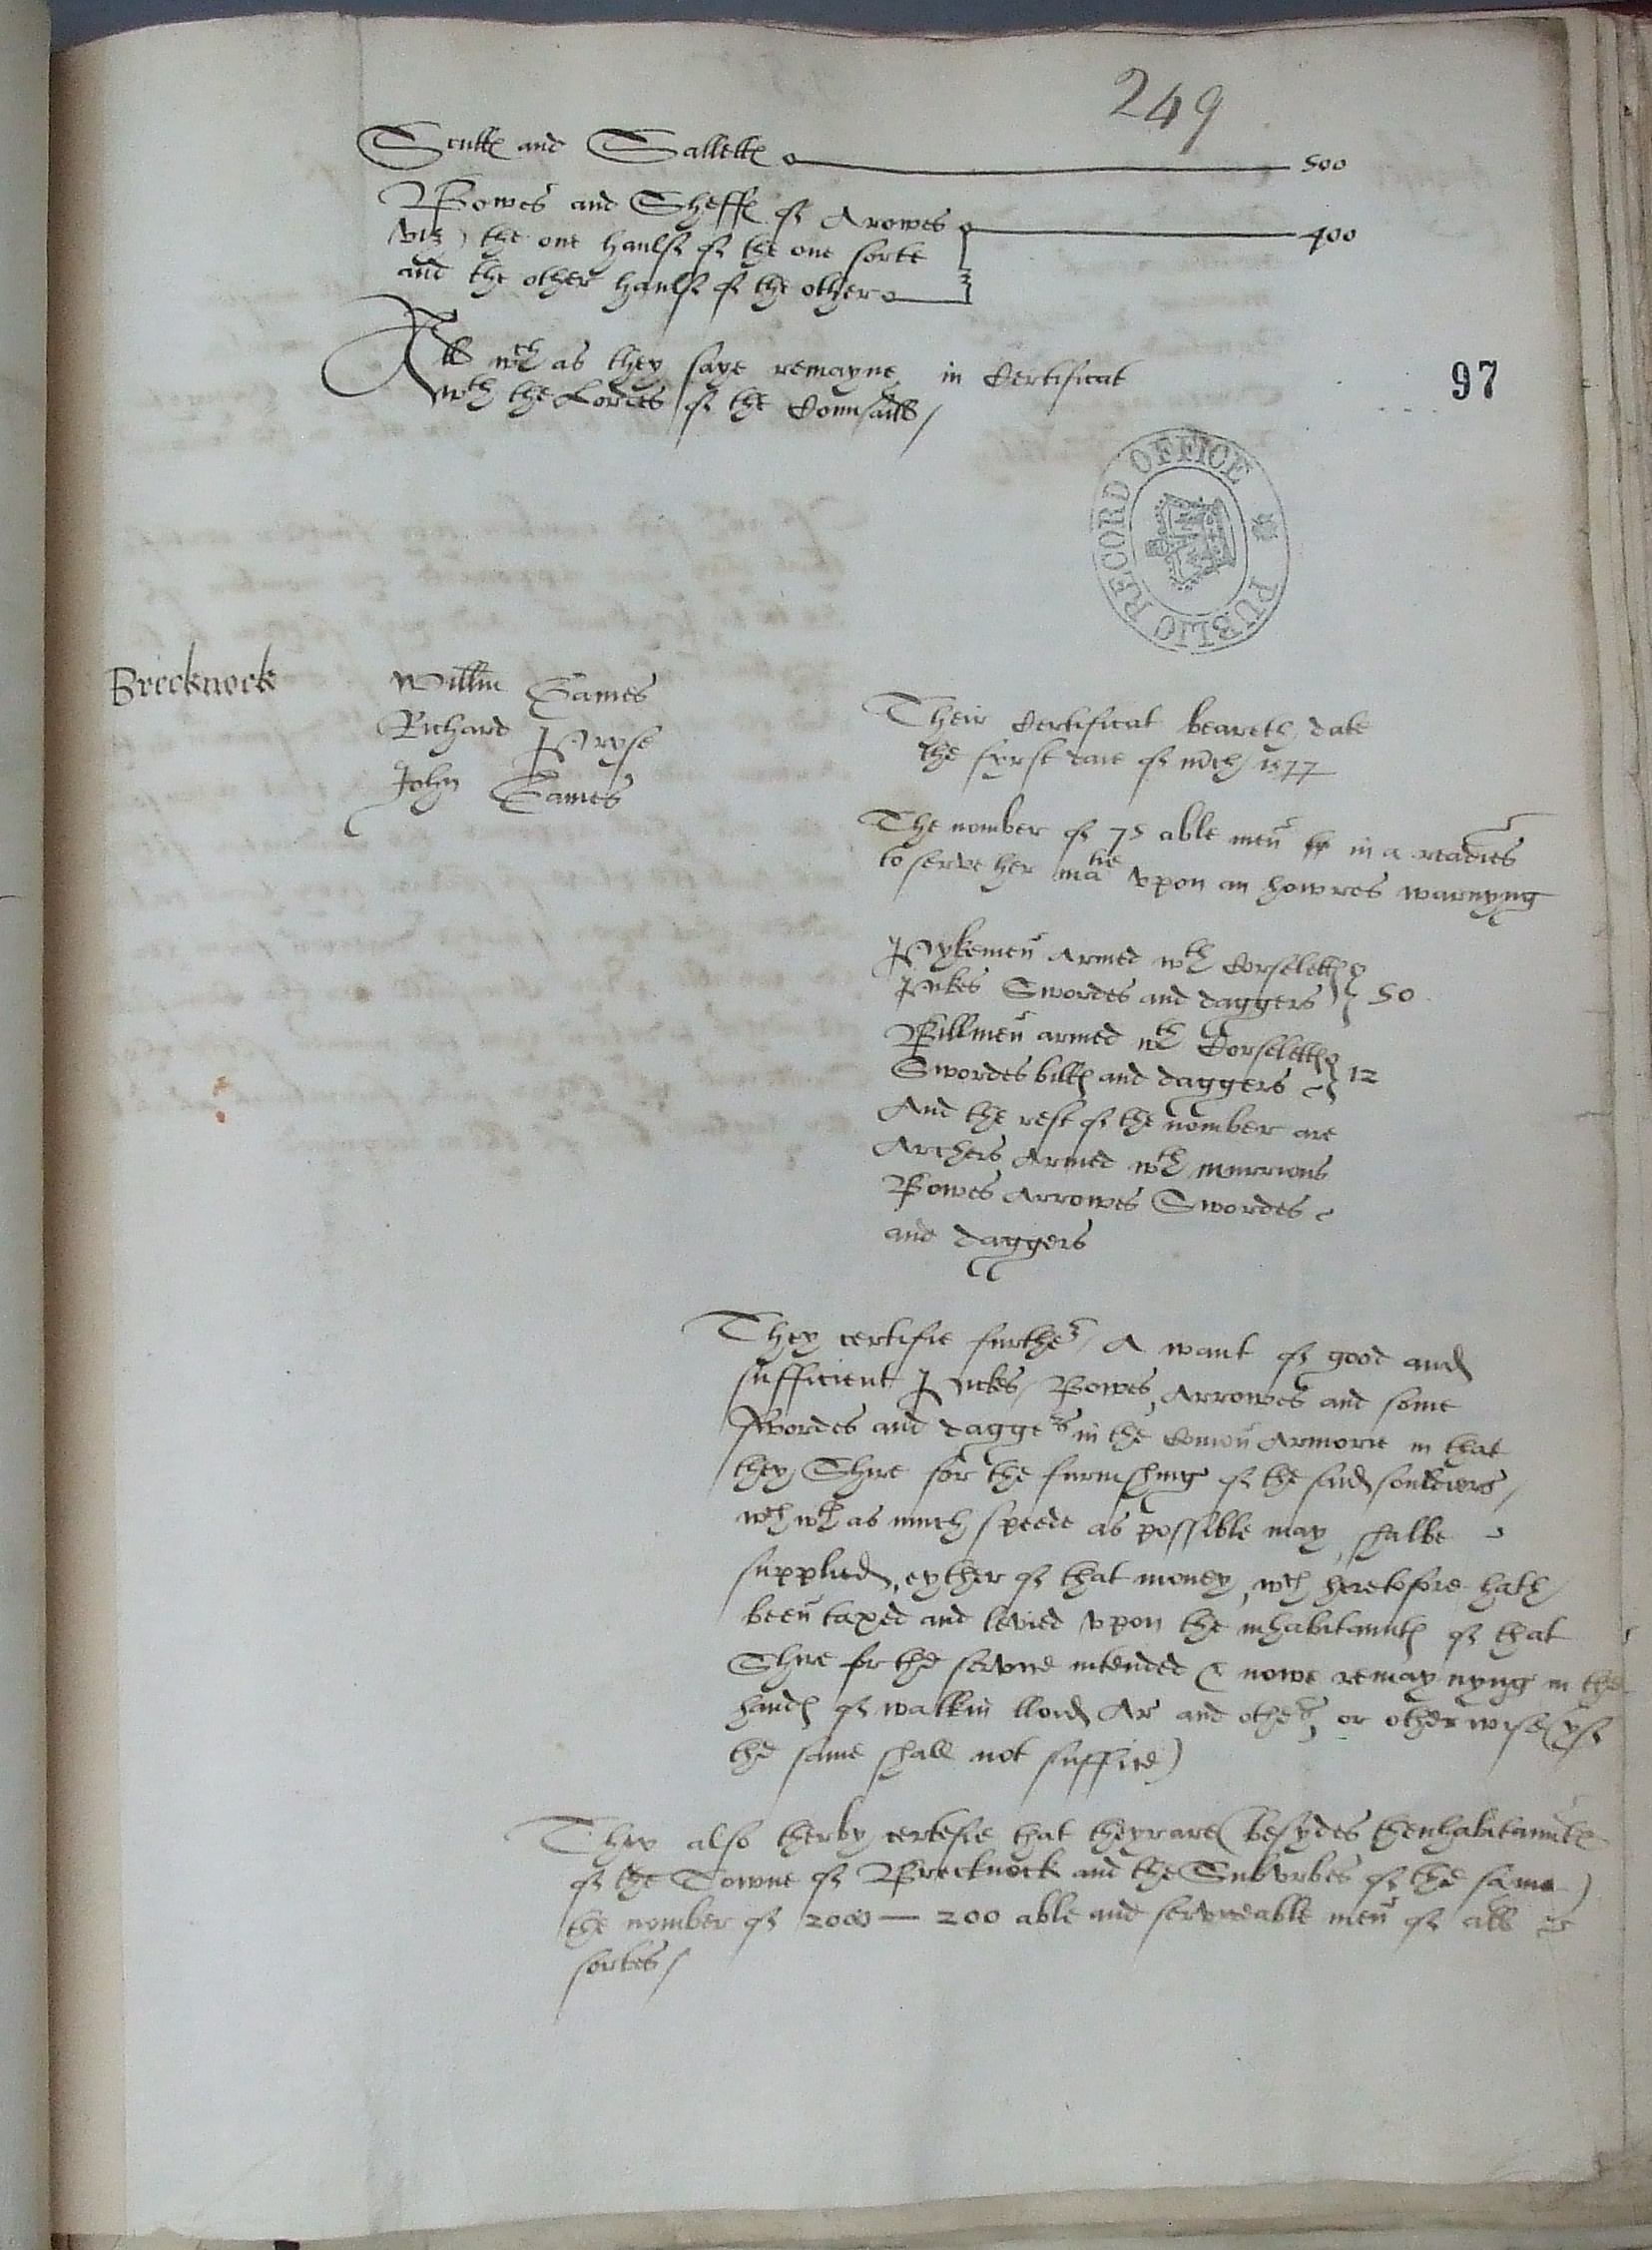 249
Sculles and Sallettes 500
Bowes and Sheffes of Arowes 400
(viz) the one haulf of the one sorte
and the other haulf of the other
All wch as they saye remayne in Certificat
wth the Lordes of the Counsaill /
97
PUBLIC RECORD OFFICE
Brecknock
Willm Games
Richard Pryse
John Games
Their Certificat beareth date
the fyrst daie of Mch 1577
The nomber of 75 able men in a readines
to serve her matie vpon an howres warnyng
Pykemen Armed wth Corselettes
Pikes Swordes and daggers } 50
Billmen armed wth Corselettes
Swordes billes and daggers } 12
And the rest of the nomber are
Archers Armed wth murrions
Bowes Arrowes Swordes
and daggers
They certifie further A want of good and
sufficient Pickes, Bowes, Arrowes and some
swordes and daggers in the Comon Armorie in that
they Shire for the furnishing of the said souldiers,
wch wth as much speede as possible may, shalbe
supplied, eyther of that money, wch heretofore hath
been taxed and levied vpon the inhabitauntes of that
Shire for the service intended (& nowe remaynyng in the
handes of Watkin lloid Ar and others, or otherwise (yf
the same shall not suffice)
They also therby certefie that theyr are (besydes thenhabitauntes
of the Towne of Brecknock and the Suburbes of the same)
the nomber of 2000 — 200 able and serviceable men of all
sortes /